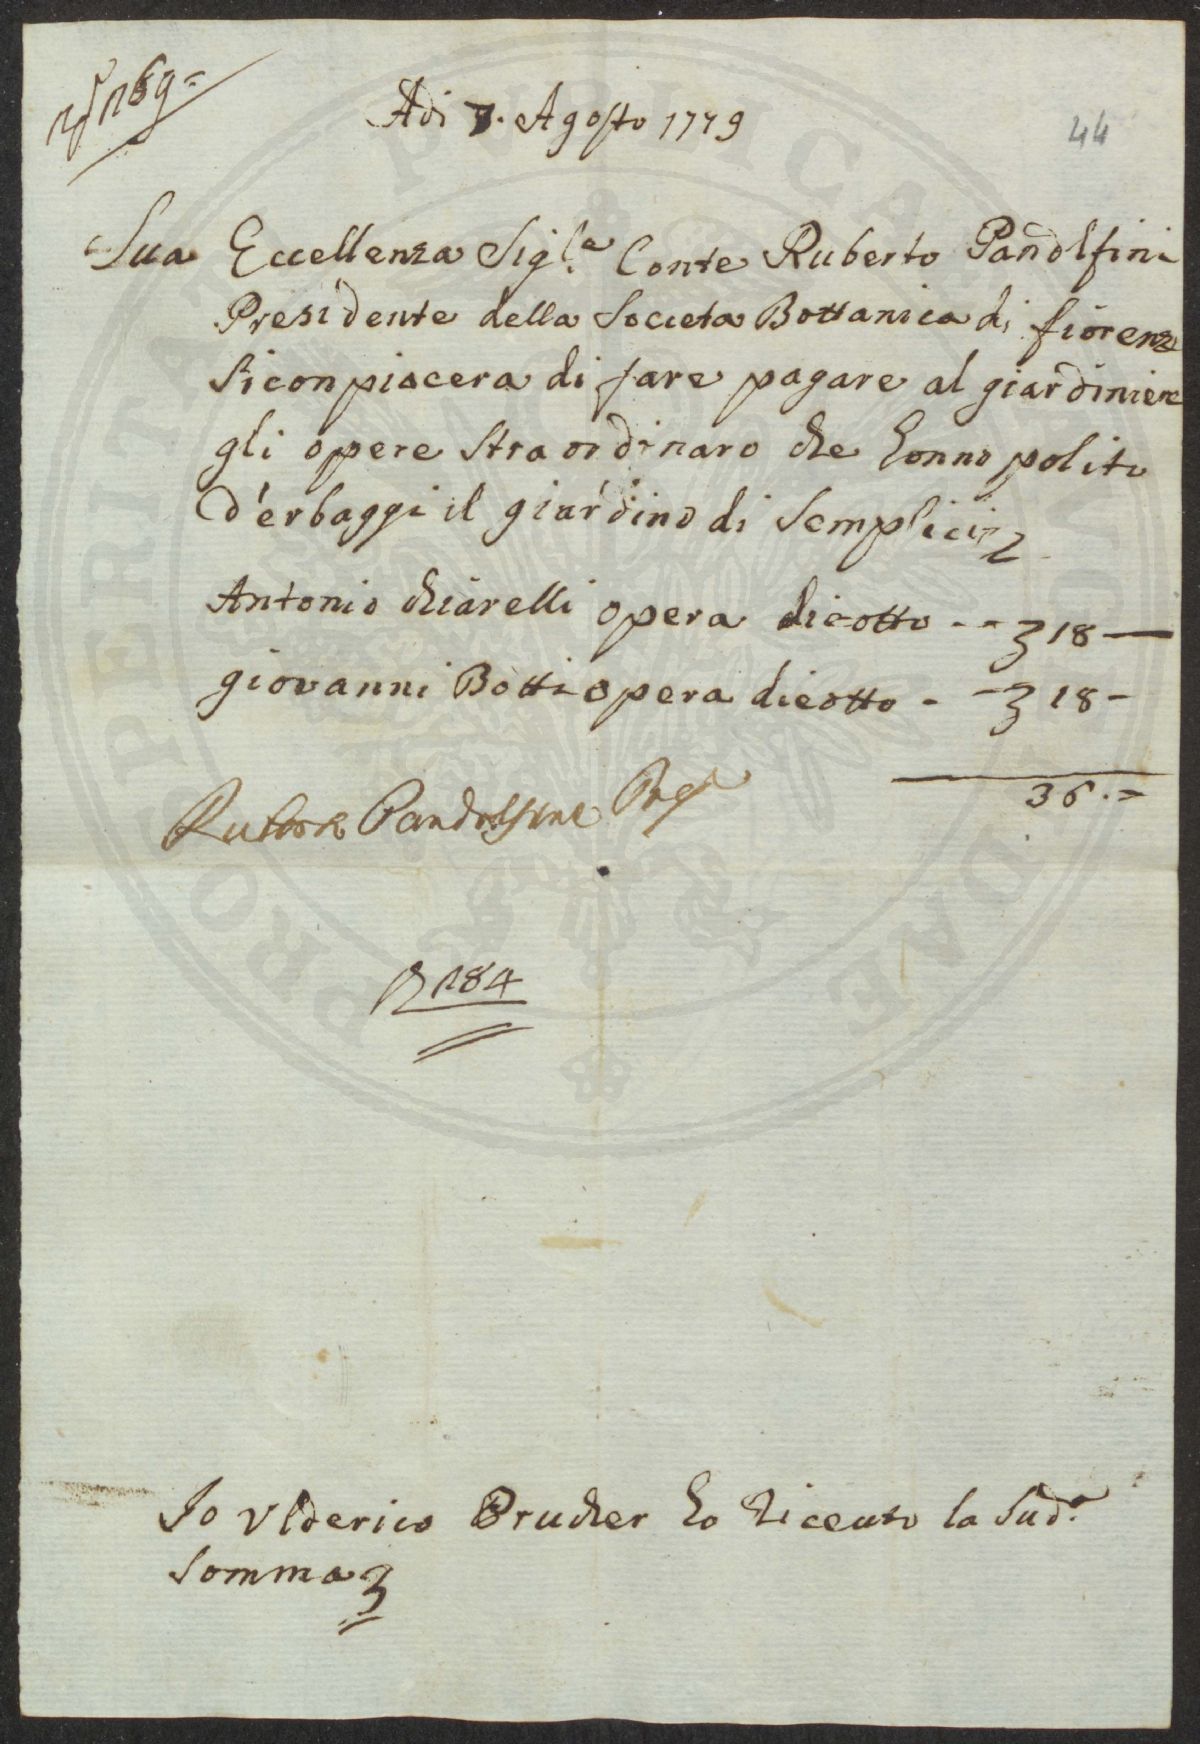 189=
Adi 7. Agosto 1779
44
Sua Eccellenza Sig.le Conte Ruberto Pandolfini
Presidente della Societa Bottanica di fiorenz
Si con piacera di fare pagare al giardiniere
gli opere Straordinaro che honno polito
d'erbaggi il giardino di Semplici
Antonio Chiarelli opera dicotto - - 18 —
giovanni Botti opera dicotto - - 18 -
36.=
Ruberto Pandolfini
184
Io Vlderico Prucher ho Riceuto la Sud.a
Somma
PROSPERITATI PUBLICAE